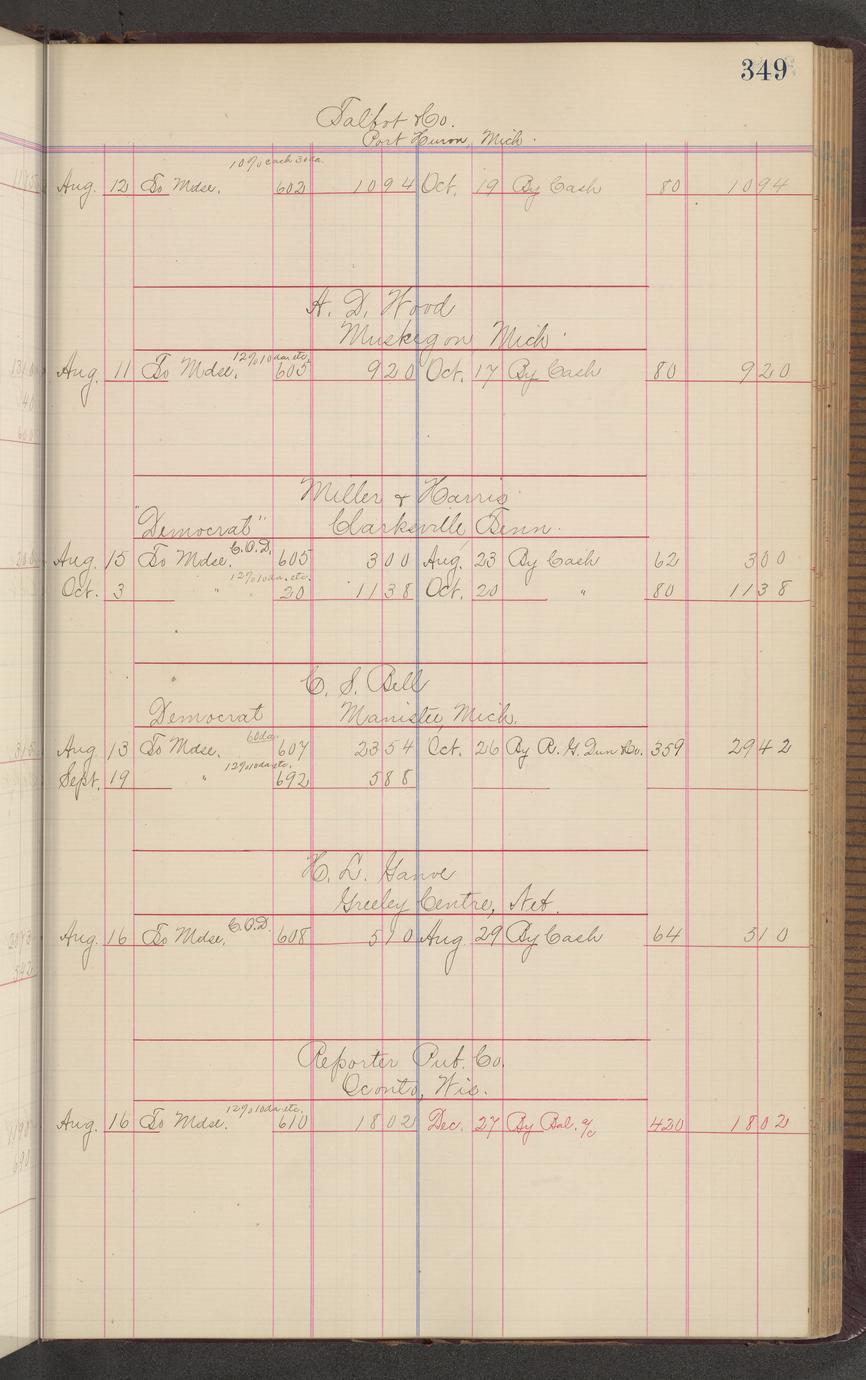 349
Talbot & Co.
Port Huron, Mich.
10% cash 30 da.
Aug. 12 To Mdse. 602 1094 Oct. 19 By Cash 80 1094
A. D. Wood
Muskegon Mich.
12% 10 da. etc.
Aug. 11 To Mdse. 605 920 Oct. 17 By Cash 80 920
Miller & Harris
"Democrat" Clarksville Tenn.
Aug. 15 To Mdse. C.O.D. 605 300 Aug. 23 By Cash 62 300
12% 10 da. etc.
Oct. 3 " 20 1138 Oct. 20 " 80 1138
C. S. Bell
Democrat Manistee, Mich.
60 da.
Aug 13 To Mdse. 607 2354 Oct. 26 By R. G. Dun & Co. 359 2942
12% 10 da. etc.
Sept. 19 " 692 588
H. L. Ganoe
Greeley Centre, Neb.
Aug. 16 To Mdse. C.O.D. 608 510 Aug. 29 By Cash 64 510
Reporter Pub. Co.
Oconto, Wis.
12% 10 da. etc.
Aug. 16 To Mdse. 610 1802 Dec. 27 By Bal. a/c 420 1802